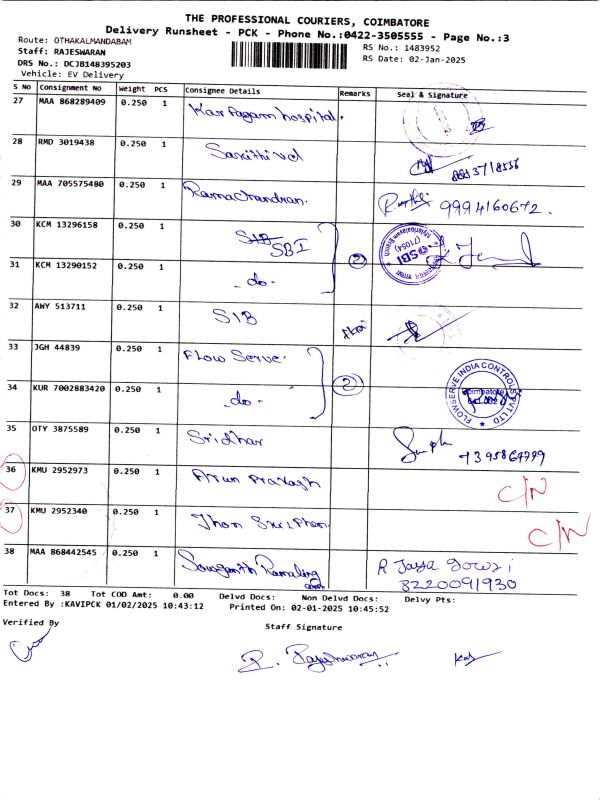 THE PROFESSIONAL COURIERS, COIMBATORE
Delivery Runsheet - PCK - Phone No.:0422-3505555 - Page No.:3
Route: OTHAKALMANDABAM
RS No.: 1483952
Staff: RAJESWARAN
RS Date: 02-Jan-2025
DRS No.: DCJB148395203
Vehicle: EV Delivery
S No Consignment No Weight PCS Consignee Details Remarks Seal & Signature
27 MAA 868289409 0.250 1 Kar Pagam hospital.
28 RMD 3019438 0.250 1
29 MAA 705575480 0.250 1 RamaChandran. 9994160672.
30 KCM 13296158 0.250 1 SIB SBI 2 SBI (71054)
31 KCM 13290152 0.250 1 -do-
32 AWY 513711 0.250 1 SIB
33 JGH 44839 0.250 1 Flow Serve.
34 KUR 7002883420 0.250 1 -do- 2 FLOWSERVE INDIA CONTROLS PVT LTD Coimbatore
35 OTY 3875589 0.250 1 Sridhar
36 KMU 2952973 0.250 1 Arun Prakash C/N
37 KMU 2952340 0.250 1 Jhon C/N
38 MAA 868442545 0.250 1 R Jaya gowri
8220091930
Tot Docs: 38 Tot COD Amt: 0.00 Delvd Docs: Non Delvd Docs: Delvy Pts:
Entered By :KAVIPCK 01/02/2025 10:43:12 Printed On: 02-01-2025 10:45:52
Verified By
Staff Signature
R. Rajeshwaran